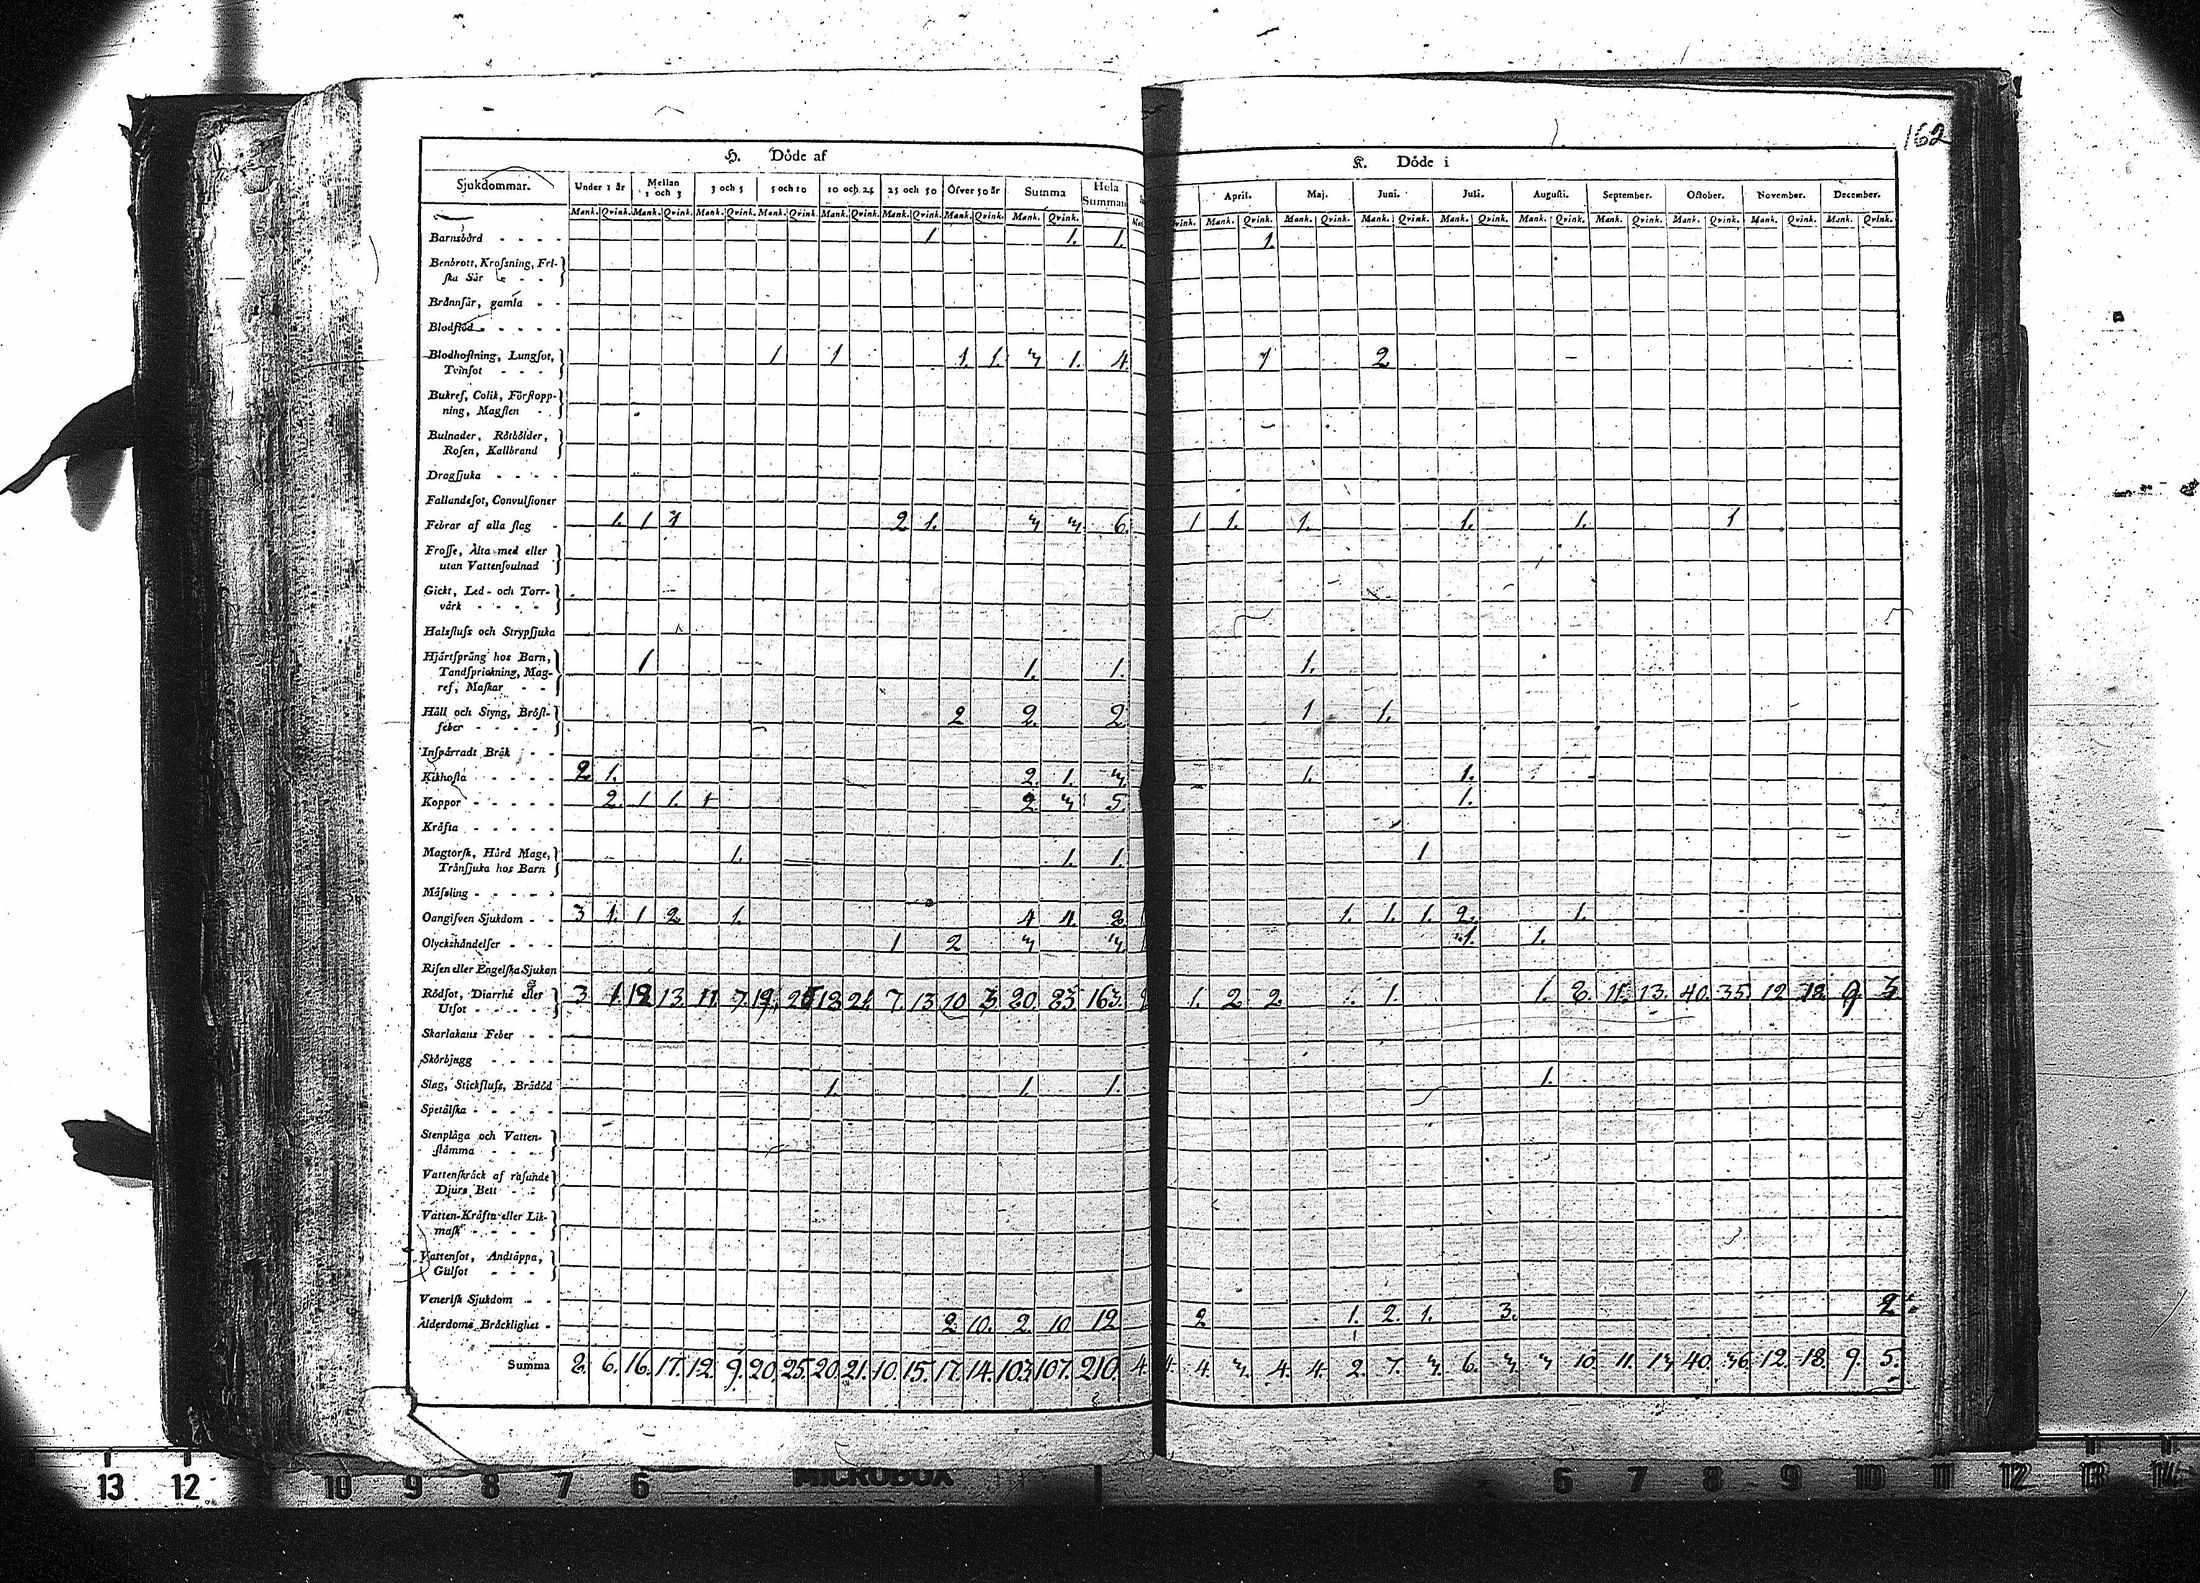 162
H. Döde af
K. Döde i
Sjukdommar. Under 1 år Mellan 1 och 3 3 och 5 5 och 10 10 och 25 25 och 50 Öfver 50 år Summa Hela Summan April. Maj. Juni. Juli. Augusti. September. October. November. December.
Mank. Qvink. Mank. Qvink. Mank. Qvink. Mank. Qvink. Mank. Qvink. Mank. Qvink. Mank. Qvink. Mank. Qvink. Mank. Qvink. Mank. Qvink. Mank. Qvink. Mank. Qvink. Mank. Qvink. Mank. Qvink. Mank. Qvink. Mank. Qvink. Mank. Qvink.
Barnsbörd - - - - 1 1. 1. 1.
Benbrott, Krosning, Fri-
ska Sår - - -
Brännsår, gamla - -
Blodstöd - - - - -
Blodhostning, Lungsot, 1 1 1. 1. 3 1. 4. 1 2
Tvinsot - - -
Bukref, Colik, Förstopp-
ning, Magsten - -
Bulnader, Rötbölder,
Rosen, Kallbrand
Dragsjuka - - - -
Fallandesot, Convulsioner
Febrar af alla slag - 1. 1 1 2 1. 3 3 6. 1 1. 1. 1. 1. 1
Frosse, Älta med eller
utan Vattensvulnad
Gickt, Led- och Torr-
värk - - - -
Halsfluss och Strypsjuka
Hjärtsprång hos Barn, 1 1. 1. 1.
Tandsprickning, Mag-
ref, Maskar - -
Håll och Styng, Bröst- 2 2. 2 1 1.
feber - - - -
Inspärradt Bråk - -
Kikhosta - - - - - 2 1. 2. 1. 3. 1. 1.
Koppor - - - - - 2. 1 1. 1 2 3 5. 1.
Kräfta - - - - -
Magtorsk, Hård Mage, 1. 1. 1. 1
Trånsjuka hos Barn
Mässling - - - - -
Oangifven Sjukdom - - 3 1. 1 2. 1. 4 4. 8. 1. 1. 1. 2. 1.
Olyckshändelser - - - 1 2 3 3. 1. 1.
Risen eller Engelska Sjukan
Rödsot, Diarrhé eller 3. 1. 12 13. 11. 7. 19. 25 18. 21. 7. 13. 10. 3 80. 83. 163. 1. 2. 2. 1. 1. 1. 8. 11. 13. 40. 35. 12. 18. 9. 3.
Utsot - - - -
Skarlakans Feber - -
Skörbjugg - - - -
Slag, Stickfluss, Brådöd 1. 1. 1. 1.
Spetälska - - - - -
Stenplåga och Vatten-
stämma - - - -
Vattenskräck af rasande
Djurs Bett - -
Vatten-Kräfta eller Lik-
mask - - - - -
Vattensot, Andtäppa,
Gulsot - - -
Venerisk Sjukdom - -
Ålderdoms Bräcklighet - 2 10. 2. 10 12 2 1. 2. 1. 3. 2
Summa 8. 6. 16. 17. 12. 9. 20. 25. 20. 21. 10. 15. 17. 14. 103. 107. 210. 4. 4. 4. 3. 4. 4. 2. 7. 3. 6. 3. 3 10. 11. 13 40. 36. 12. 18. 9. 5.
13 12 10 9 8 7 6 MICROBOX 6 7 8 9 10 11 12 13 14